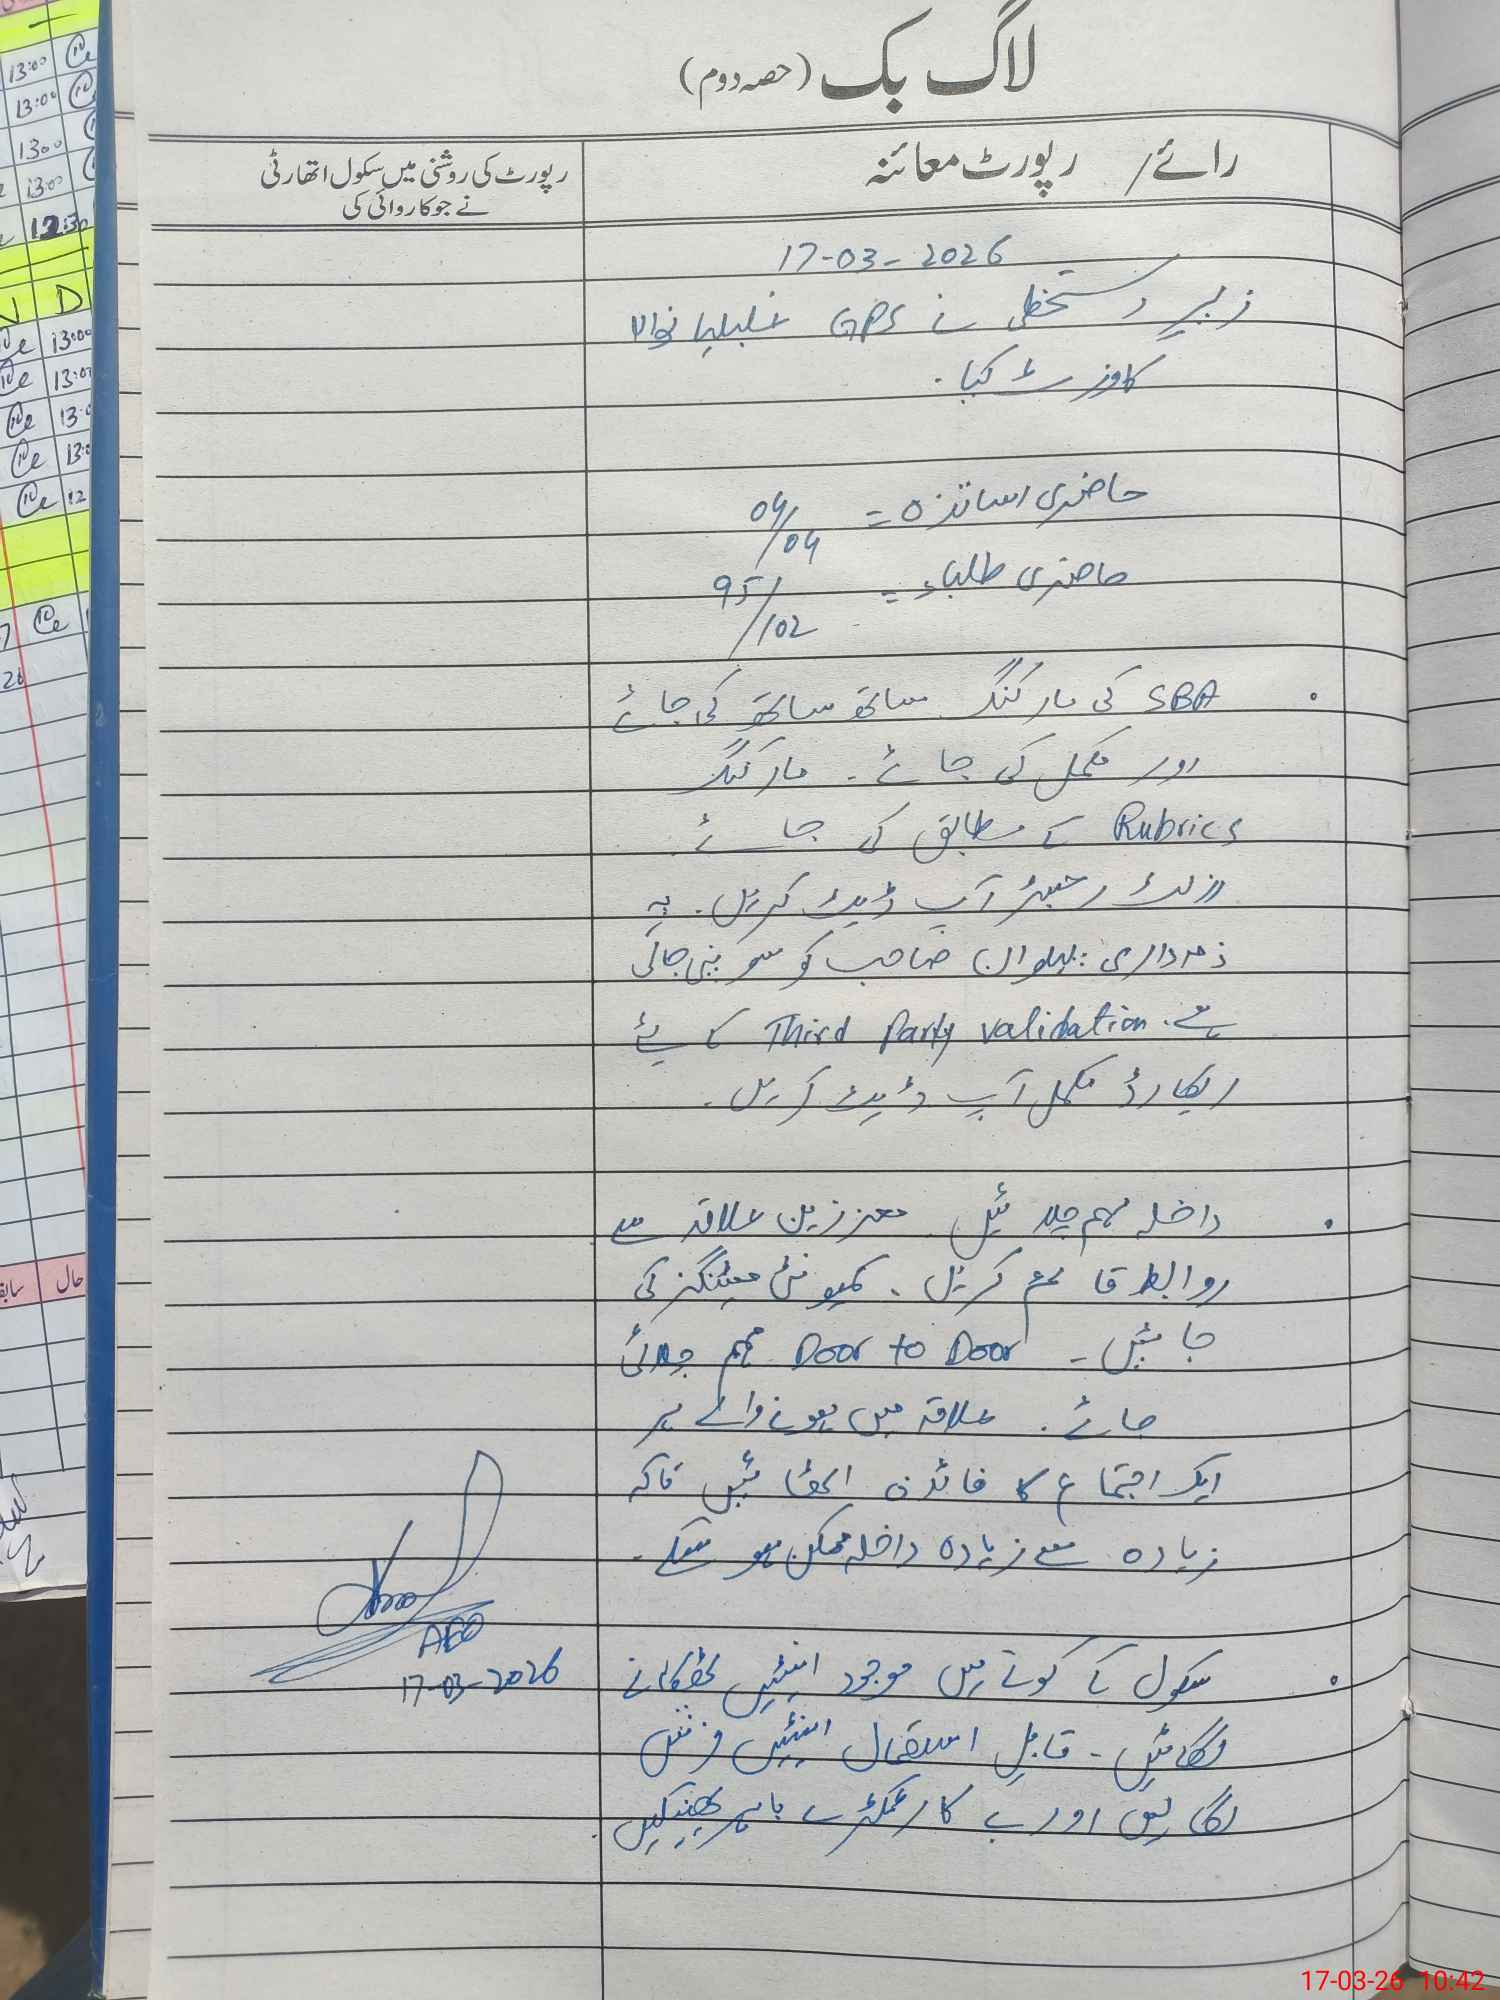 لاگ بک (حصہ دوم)
رائے / رپورٹ معائنہ
رپورٹ کی روشنی میں سکول اتھارٹی
نے جو کاروائی کی
17-03-2026
زیر دستخطی نے GPS
کا وزٹ کیا۔
حاضری اساتذہ = 04/04
حاضری طلباء = 95/102
SBA کی مارکنگ ساتھ ساتھ کی جائے
اور مکمل کی جائے۔ مارکنگ
Rubrics کے مطابق کی جائے۔
رزلٹ رجسٹر اپ ڈیٹ کریں۔ یہ
ذمہ داری صاحب کو سونپی جاتی
ہے۔ Third Party validation کے لیے
ریکارڈ مکمل اپ ڈیٹ کریں۔
داخلہ مہم چلائیں۔ معززین علاقہ سے
روابط قائم کریں۔ کمیونٹی میٹنگز کی
جائیں۔ Door to Door مہم چلائی
جائے۔ علاقہ میں ہونے والے ہر
ایک اجتماع کا فائدہ اٹھائیں تاکہ
زیادہ سے زیادہ داخلہ ممکن ہو سکے۔
سکول کے کونے میں موجود اینٹیں ٹھکانے
لگائیں۔ قابل استعمال اینٹیں فرش
لگائیں اور بے کار ٹکڑے باہر پھینکیں۔
AEO
17-03-2026
13:00
13:00
13:00
13:00
12:30
D
13:00
حال
17-03-26 10:42